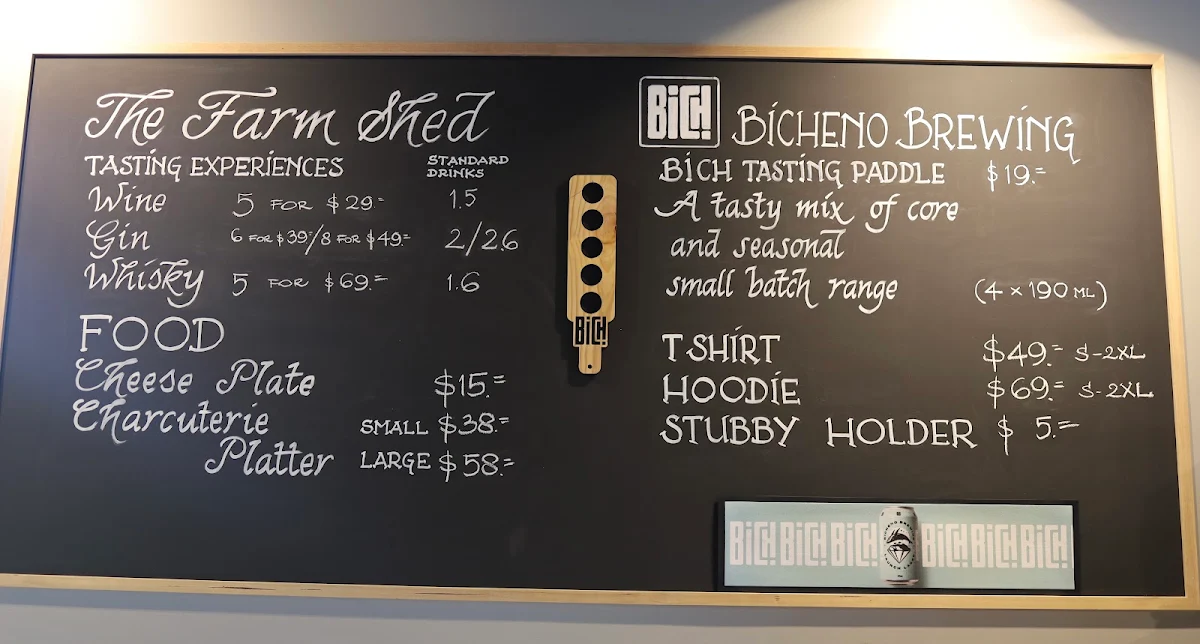 The Farm Shed
TASTING EXPERIENCES STANDARD DRINKS
Wine 5 FOR $29.= 1.5
Gin 6 FOR $39.=/8 FOR $49.= 2/2.6
Whisky 5 FOR $69.= 1.6
FOOD
Cheese Plate $15.=
Charcuterie SMALL $38.=
Platter LARGE $58.=
BICH!
BICH! BICHENO BREWING
BICH TASTING PADDLE $19.=
A tasty mix of core
and seasonal
small batch range (4 x 190 ML)
T SHIRT $49.= S-2XL
HOODIE $69.= S-2XL
STUBBY HOLDER $ 5.=
BICH! BICH! BICH! BICH! BICH! BICH!